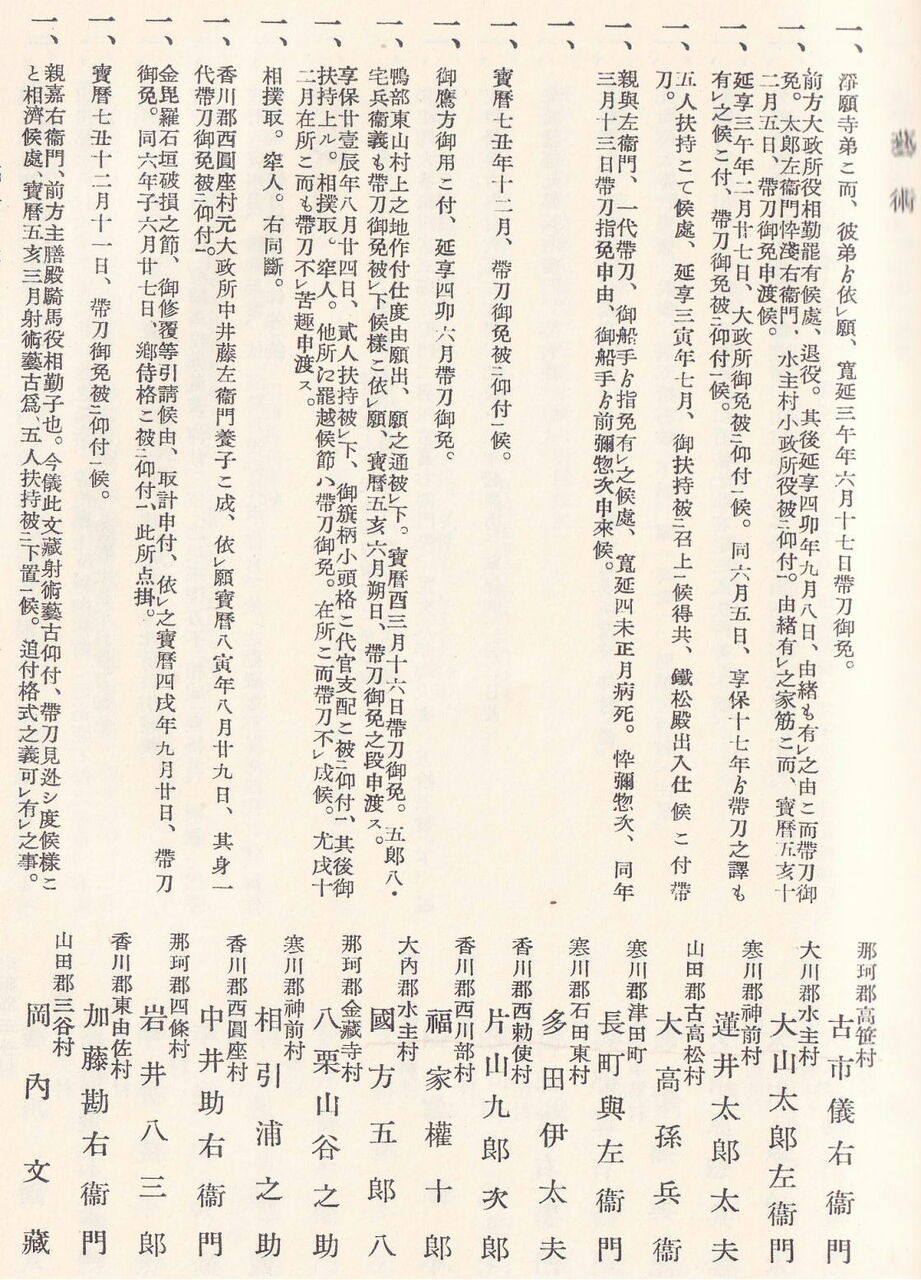 藝術
一、淨願寺弟ニ而、彼弟ゟ依㆑願、寬延三午年六月十七日帶刀御免。
那珂郡高笹村
古市儀右衞門
一、前方大政所役相勤罷有候處、退役。其後延享四卯年九月八日、由緖も有㆑之由ニ而帶刀御
免。太郎左衞門悴淺右衞門、水主村小政所役被㆓仰付㆒。由緖有㆑之家筋ニ而、寶曆五亥十
二月五日、帶刀御免申渡候。
大川郡水主村
大山太郎左衞門
一、延享三午年二月廿七日、大政所御免被㆓仰付㆒候。同六月五日、享保十七年ゟ帶刀之譯も
有㆑之候ニ付、帶刀御免被㆓仰付㆒候。
寒川郡神前村
蓮井太郎太夫
一、五人扶持ニて候處、延享三寅年七月、御扶持被㆓召上㆒候得共、鐵松殿出入仕候ニ付帶
刀。
山田郡古高松村
大高孫兵衞
一、親與左衞門、一代帶刀、御船手ゟ指免有㆑之候處、寬延四未正月病死。悴彌惣次、同年
三月十三日帶刀指免申由、御船手ゟ前彌惣次申來候。
寒川郡津田町
長町與左衞門
一、
寒川郡石田東村
多田伊太夫
一、寶曆七丑年十二月、帶刀御免被㆓仰付㆒候。
香川郡西勅使村
片山九郎次郎
一、御鷹方御用ニ付、延享四卯六月帶刀御免。
香川郡西川部村
福家權十郎
一、鴨部東山村上之地作付仕度由願出、願之通被㆑下。寶曆酉三月十六日帶刀御免。五郎八・
宅兵衞義も帶刀御免被㆑下候樣ニ依㆑願、寶曆五亥六月朔日、帶刀御免之段申渡ス。
大內郡水主村
國方五郎八
一、享保廿壹辰年八月廿四日、貳人扶持被㆑下、御籏柄小頭格ニ代官支配ニ被㆓仰付㆒、其後御
扶持上ル。相撲取。窂人。他所江罷越候節ハ帶刀御免。在所ニ而帶刀不㆑成候。尤戌十
二月在所ニ而も帶刀不㆑苦趣申渡ス。
那珂郡金藏寺村
八栗山谷之助
一、相撲取。窂人。右同斷。
寒川郡神前村
相引浦之助
一、香川郡西圓座村元大政所中井藤左衞門養子ニ成、依㆑願寶曆八寅年八月廿九日、其身一
代帶刀御免被㆓仰付㆒。
香川郡西圓座村
中井助右衞門
一、金毘羅石垣破損之節、御修覆等引請候由、取計申付、依㆑之寶曆四戌年九月廿日、帶刀
御免。同六年子六月廿七日、鄕侍格ニ被㆓仰付㆒、此所点掛。
那珂郡四條村
岩井八三郎
一、寶曆七丑十二月十一日、帶刀御免被㆓仰付㆒候。
香川郡東由佐村
加藤勘右衞門
一、親嘉右衞門、前方主膳殿騎馬役相勤子也。今儀此文藏射術藝古仰付、帶刀見迯シ度候樣ニ
と相濟候處、寶曆五亥三月射術藝古爲、五人扶持被㆓下置㆒候。追付格式之義可㆑有㆑之事。
山田郡三谷村
岡內文藏